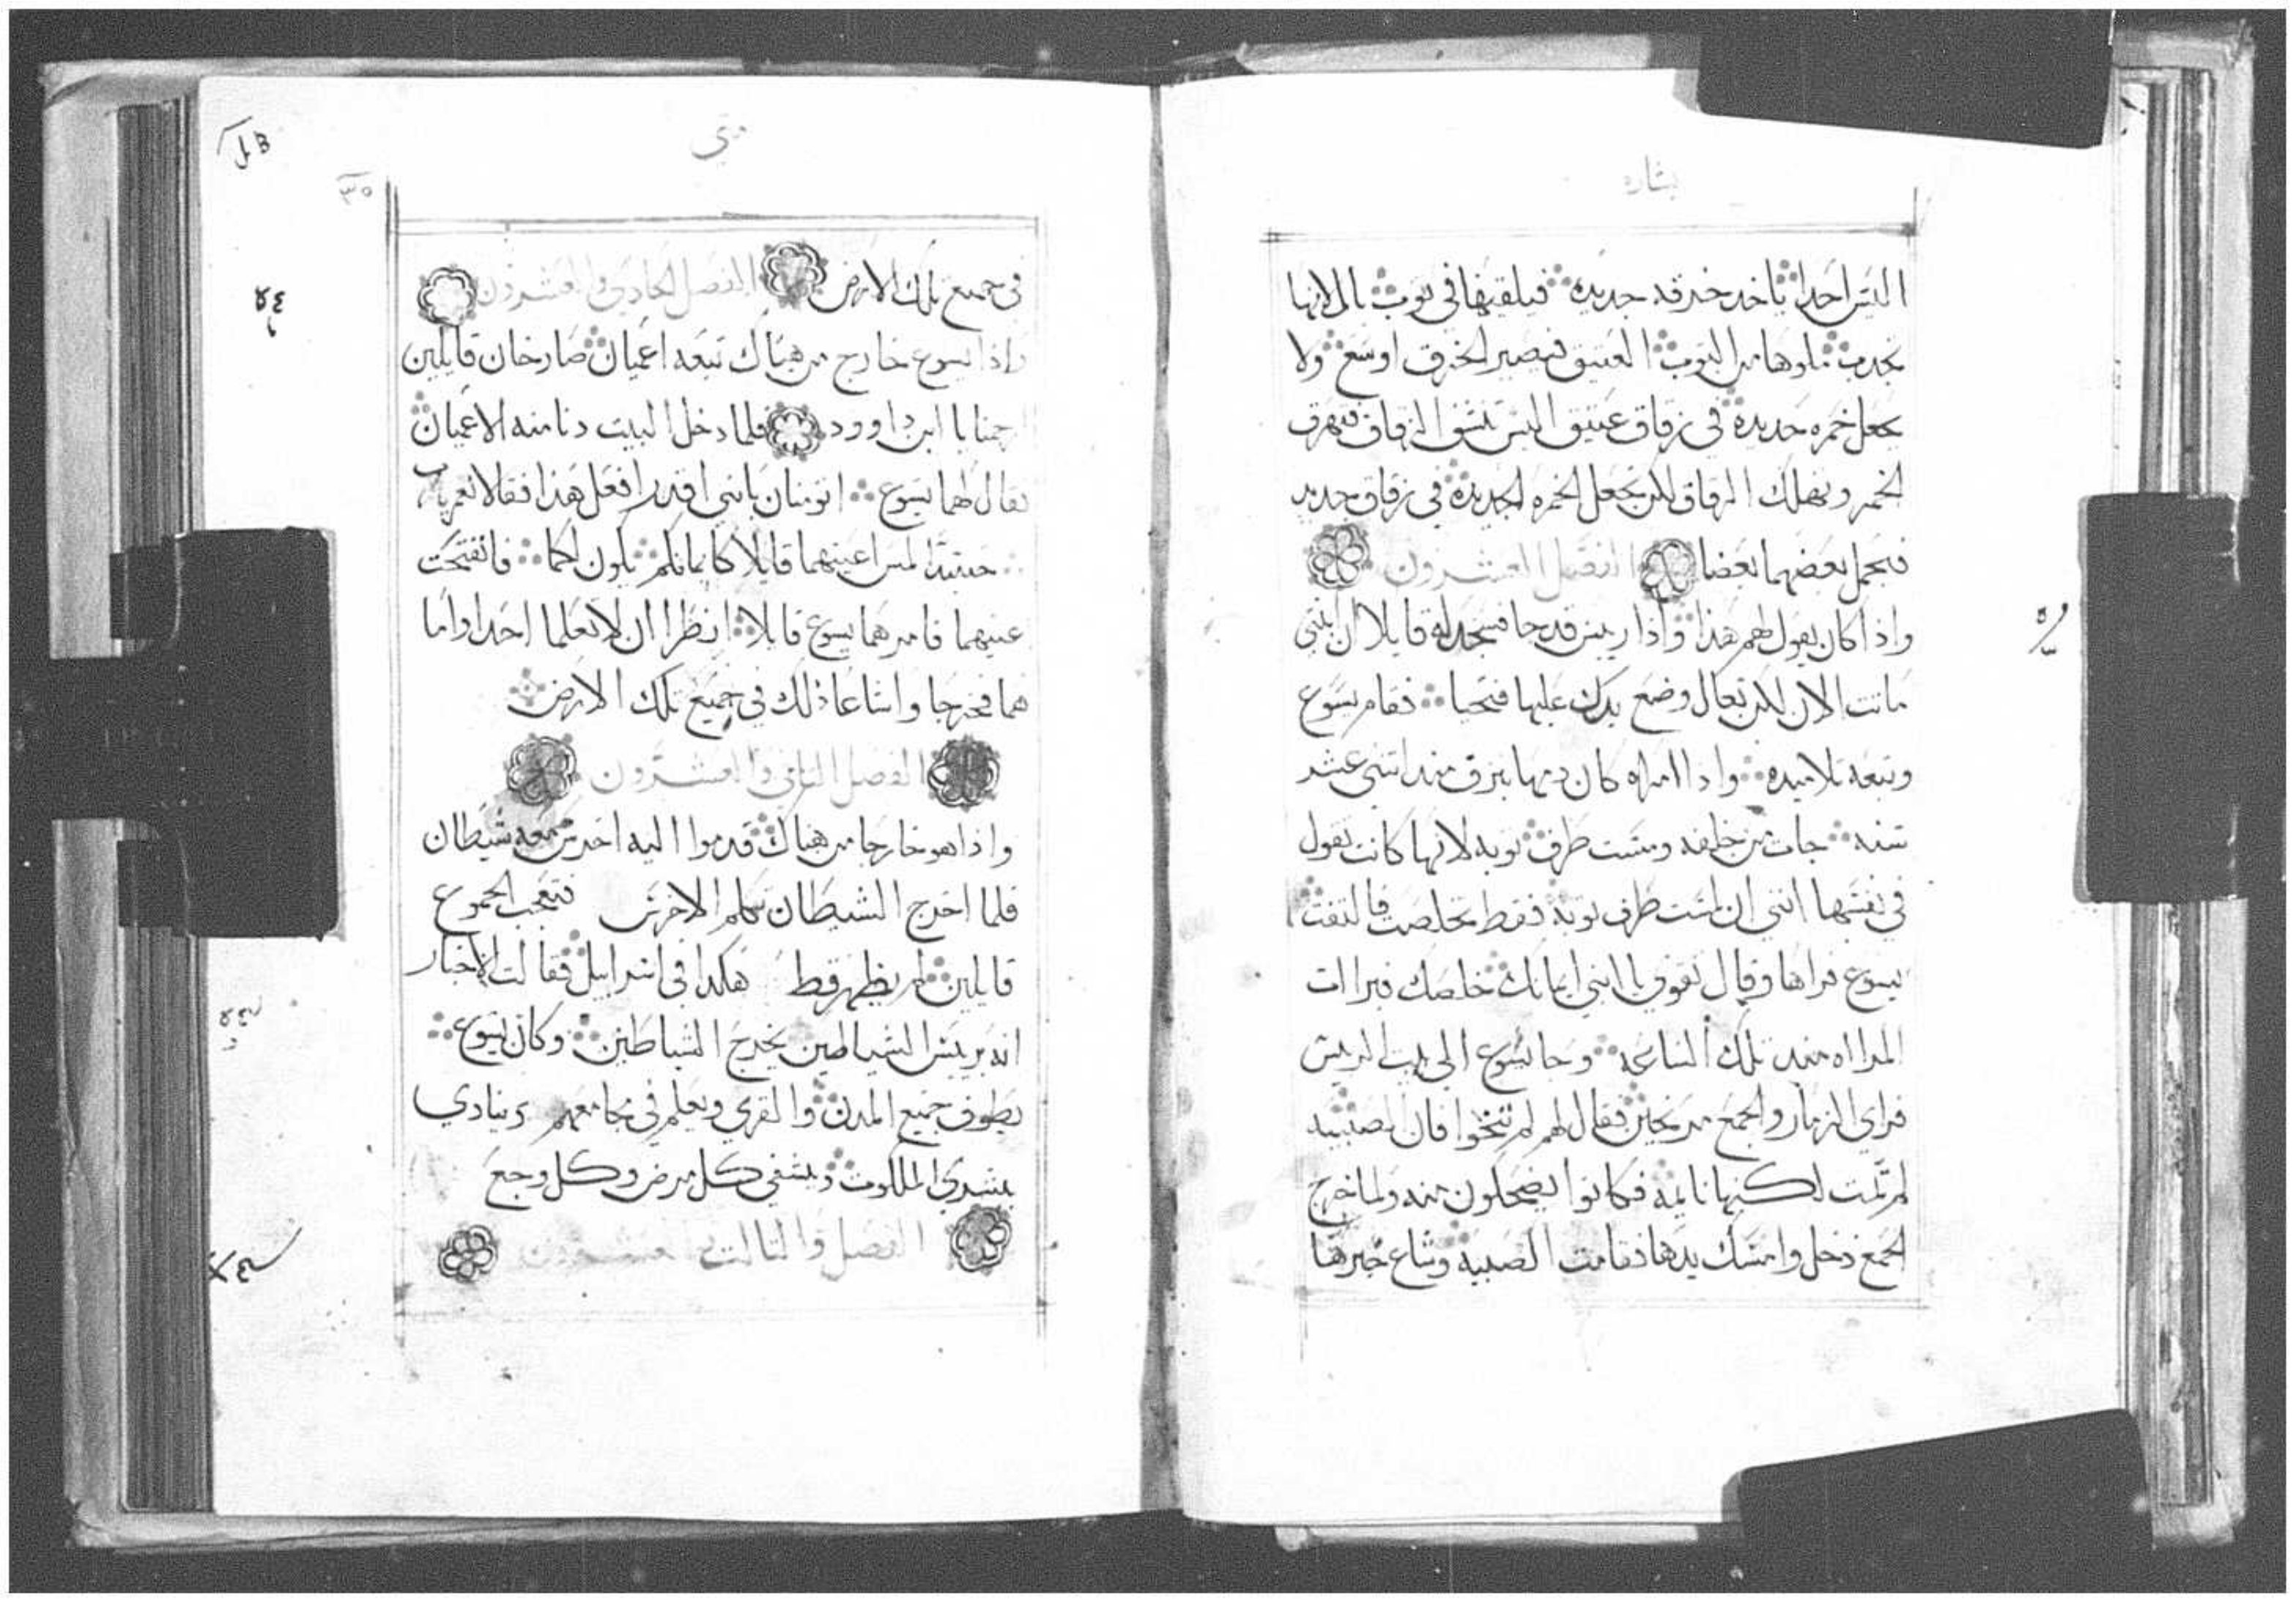 بشاره
اليس احدا ياخد خرقه جديده فيلقيها في توب بال لانها
تجدب ملوها من التوب العتيق فيصير الخرق اوسع ولا
يجعل خمره جديده في زقاق عتيق اليس تنشق الزقاق فتهرق
الخمر وتهلك الزقاق لكن تجعل الخمره الجديده في زقاق جديد
فتحمل بعضهما بعضا الفصل العشرون
واذا كان يقول لهم هذا واذا رييس قد جا فسجد له قايلا ان ابنتي
ماتت الان لكن تعال وضع يدك عليها فتحيا فقام يسوع
وتبعه تلاميده واذا امراه كان دمها ينزف مند اتني عشر
سنه جات من خلفه ومست طرف توبه لانها كانت تقول
في نفسها انني ان لمست طرف توبه فقط تخلصت فالتفت
يسوع فراها وقال تقوي يا ابنتي ايمانك خلصك فبراات
المراه مند تلك الساعه وجا يسوع الى بيت الرييس
فراي الزمار والجمع مرتجين فقال لهم لم تنحوا فان الصبيه
لم تمت لكنها نايمه فكانوا يضحكون منه ولما خرج
الجمع دخل وامسك يدها فقامت الصبيه وشاع خبرها
متي
٣٥
في جميع تلك الارض الفصل الحادي والعشرون
واذا يسوع خارج من هناك تبعه اعميان صارخان قايلين
ارحمنا يا ابن داوود فلما دخل البيت دنا منه الاعميان
فقال لهما يسوع اتومنان بانني اقدر افعل هذا فقالا نعم يارب
حينيدا لمس اعينهما قايلا كايمانكم يكون لكما فانفتحت
عينيهما فامرهما يسوع قايلا انظرا ان لا تعلما احدا واما
هما فخرجا واشاعا ذلك في جميع تلك الارض
الفصل التاني والعشرون
واذا هو خارجا من هناك قدموا اليه اخرس معه شيطان
فلما اخرج الشيطان تكلم الاخرس فتعجب الجموع
قايلين لم يظهر قط هكدا في اسراييل فقالت الاحبار
انه برييس الشياطين يخرج الشياطين وكان يسوع
يطوف جميع المدن والقري ويعلم في مجامعهم وينادي
ببشري الملكوت ويشفي كل مرض وكل وجع
الفصل والتالت والعشرون